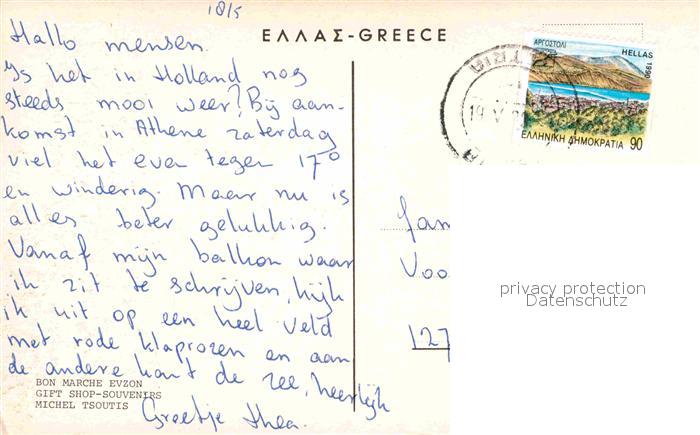 18/5
Hallo mensen.
Is het in Holland nog
steeds mooi weer? Bij aan-
komst in Athene zaterdag
viel het even tegen 17°
en winderig. Maar nu is
alles beter gelukkig.
Vanaf mijn balkon waar
ik zit te schrijven, kijk
ik uit op een heel veld
met rode klaprozen en aan
de andere kant de zee, heerlijk
Groetje Thea.
BON MARCHE EVZON
GIFT SHOP-SOUVENIRS
MICHEL TSOUTIS
ΕΛΛΑΣ-GREECE
ΑΡΓΟΣΤΟΛΙ
HELLAS 1990
ΕΛΛΗΝΙΚΗ ΔΗΜΟΚΡΑΤΙΑ 90
19 V
fam
Voo
127
privacy protection
Datenschutz